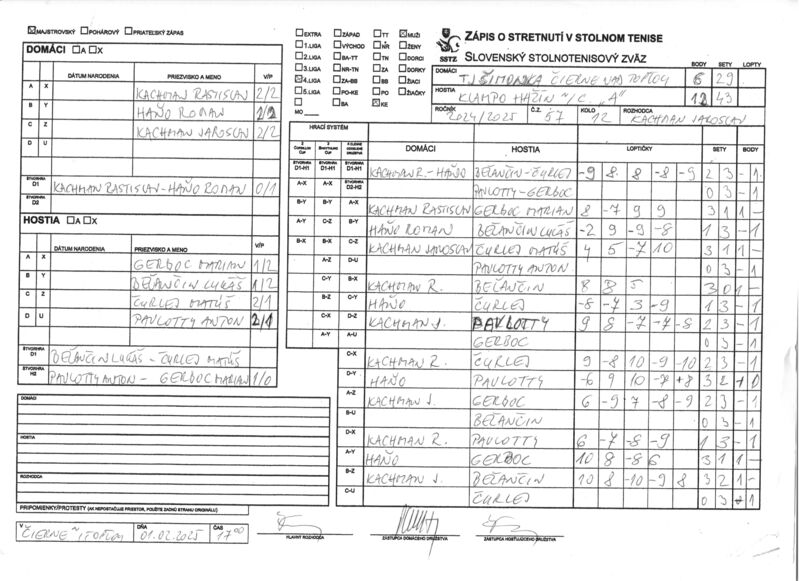 MAJSTROVSKÝ POHÁROVÝ PRIATEĽSKÝ ZÁPAS
DOMÁCI A X
DÁTUM NARODENIA PRIEZVISKO A MENO V/P
A X KACHMAN RASTISLAV 2/2
B Y HAŇO ROMAN 2/2
C Z KACHMAN JAROSLAV 2/2
D U
ŠTVORHRA D1 KACHMAN RASTISLAV - HAŇO ROMAN 0/1
ŠTVORHRA D2
HOSTIA A X
DÁTUM NARODENIA PRIEZVISKO A MENO V/P
A X GERBOC MARIAN 1/2
B Y BEŤANČIN LUKÁŠ 1/2
C Z ČURLEJ MATÚŠ 2/1
D U PAVLOTTY ANTON 2/1
ŠTVORHRA D1 BEŤANČIN LUKÁŠ - ČURLEJ MATÚŠ
ŠTVORHRA H2 PAVLOTTY ANTON - GERBOC MARIAN 1/0
DOMÁCI
HOSTIA
ROZHODCA
PRIPOMIENKY/PROTESTY (AK NEPOSTAČUJE PRIESTOR, POUŽITE ZADNÚ STRANU ORIGINÁLU)
EXTRA ZÁPAD TT MUŽI
1.LIGA VÝCHOD NR ŽENY
2.LIGA BA-TT TN DORCI
3.LIGA NR-TN ZA DORKY
4.LIGA ZA-BB BB ŽIACI
5.LIGA PO-KE PO ŽIAČKY
BA KE
MO
SSTZ
ZÁPIS O STRETNUTÍ V STOLNOM TENISE
SLOVENSKÝ STOLNOTENISOVÝ ZVÄZ
BODY SETY LOPTY
DOMÁCI TJ ŠIMONKA ČIERNE NAD TOPĽOU 6 29
HOSTIA KLUMPO HAŽÍN "A" 12 43
ROČNÍK 2024/2025 Č.Z. 57 KOLO 12 ROZHODCA KACHMAN JAROSLAV
HRACÍ SYSTÉM
DOMÁCI HOSTIA LOPTIČKY SETY BODY
ŠTVORHRA D1-H1 ŠTVORHRA D1-H1 ŠTVORHRA D1-H1 KACHMAN R. - HAŇO BEŤANČIN - ČURLEJ -9 8 8 -8 -9 2 3 -1
A-X A-X ŠTVORHRA D2-H2 PAVLOTTY - GERBOC 0 3 -1
B-Y B-Y A-X KACHMAN RASTISLAV GERBOC MARIAN 8 -7 9 9 3 1 1 -
A-Y C-Z B-Y HAŇO ROMAN BEŤANČIN LUKÁŠ -2 9 -9 -8 1 3 -1
B-X B-X C-Z KACHMAN JAROSLAV ČURLEJ MATÚŠ 4 5 -7 10 3 1 1 -
A-Z D-U PAVLOTTY ANTON 0 3 -1
C-Y B-X KACHMAN R. BEŤANČIN 8 8 5 3 0 1 -
B-Z C-Y HAŇO ČURLEJ -8 -7 3 -9 1 3 -1
C-X D-Z KACHMAN J. PAVLOTTY 9 8 -7 -7 -8 2 3 -1
A-Y A-U GERBOC 0 3 -1
C-X KACHMAN R. ČURLEJ 9 -8 10 -9 -10 2 3 -1
D-Y HAŇO PAVLOTTY -6 9 10 8 3 2 1 0
A-Z KACHMAN J. GERBOC 6 -9 7 -8 -9 2 3 -1
B-U BEŤANČIN 0 3 -1
D-X KACHMAN R. PAVLOTTY 6 -7 -8 -9 1 3 -1
A-Y HAŇO GERBOC 10 8 -8 6 3 1 1 -
B-Z KACHMAN J. BEŤANČIN 10 8 -10 -9 8 3 2 1 -
C-U ČURLEJ 0 3 -1
V ČIERNE DŇA 01.02.2025 ČAS 17°°
HLAVNÝ ROZHODCA ZÁSTUPCA DOMÁCEHO DRUŽSTVA ZÁSTUPCA HOSŤUJÚCEHO DRUŽSTVA